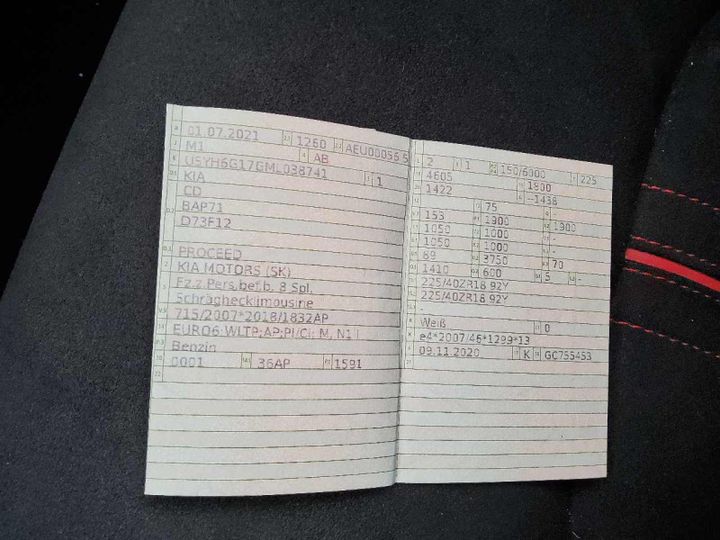 01.07.2021 1260 AEU00056 5
M1 AB
U5YH6G17GML038741 1
KIA
CD
BAP71
D73F12
PROCEED
KIA MOTORS (SK)
Fz.z.Pers.bef.b. 8 Spl.
Schräghecklimousine
715/2007*2018/1832AP
EURO6;WLTP;AP;PI/CI; M, N1 I
Benzin
0001 36AP 1591
2 1 150/6000 225
4605 1800
1422 --1438
75
153 1900 1900
1050 1000 -
1050 1000 -
89 3750 70
1410 600 5 -
225/40ZR18 92Y
225/40ZR18 92Y
-
Weiß 0
e4*2007/46*1299*13
09.11.2020 K GC755453